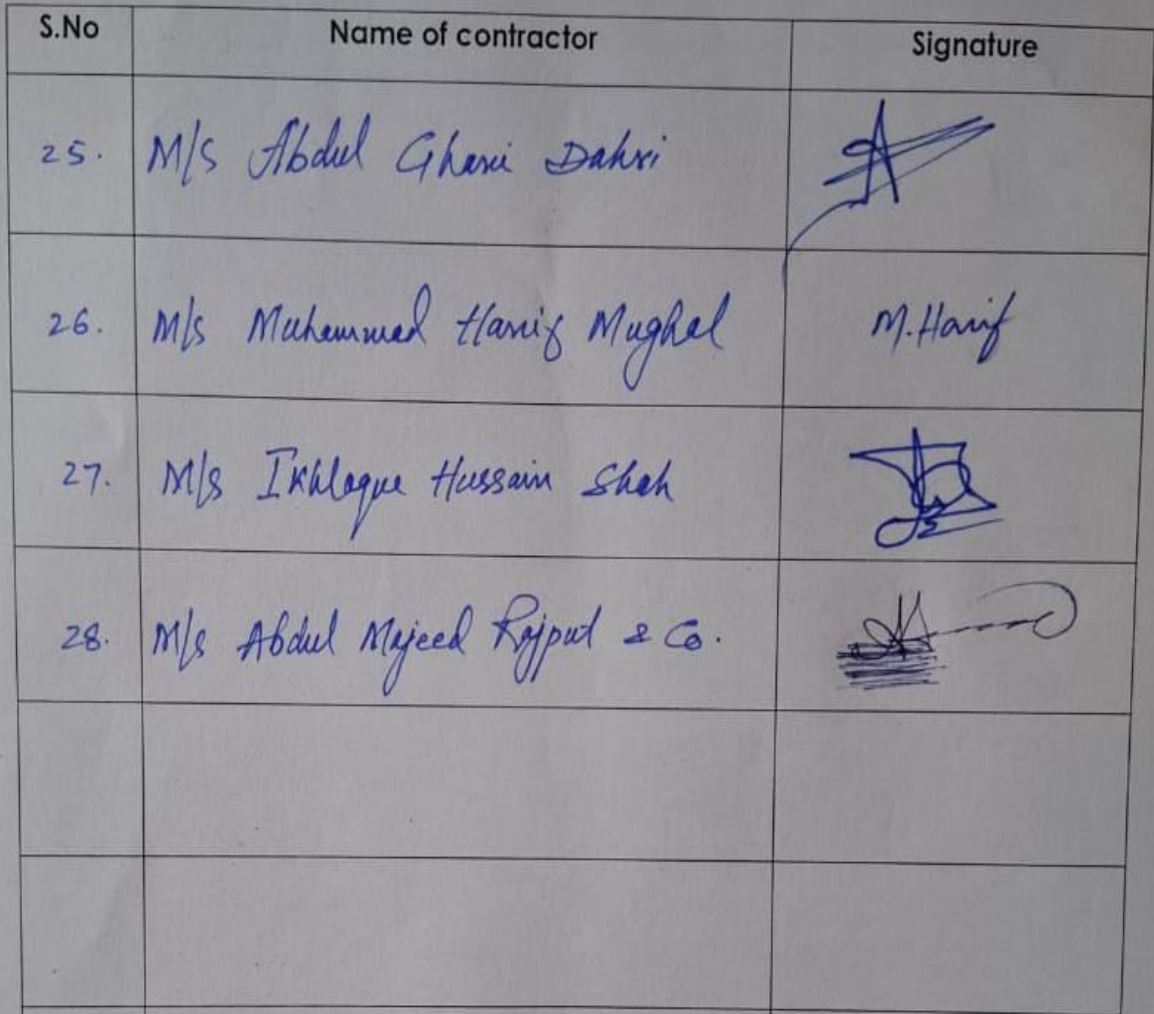 S.No Name of contractor Signature
25. M/S Abdul Ghani Dahri
26. M/s Muhammad Hanif Mughal M.Hanif
27. M/s Ikhlaque Hussain Shah
28. M/s Abdul Majeed Rajput & Co.